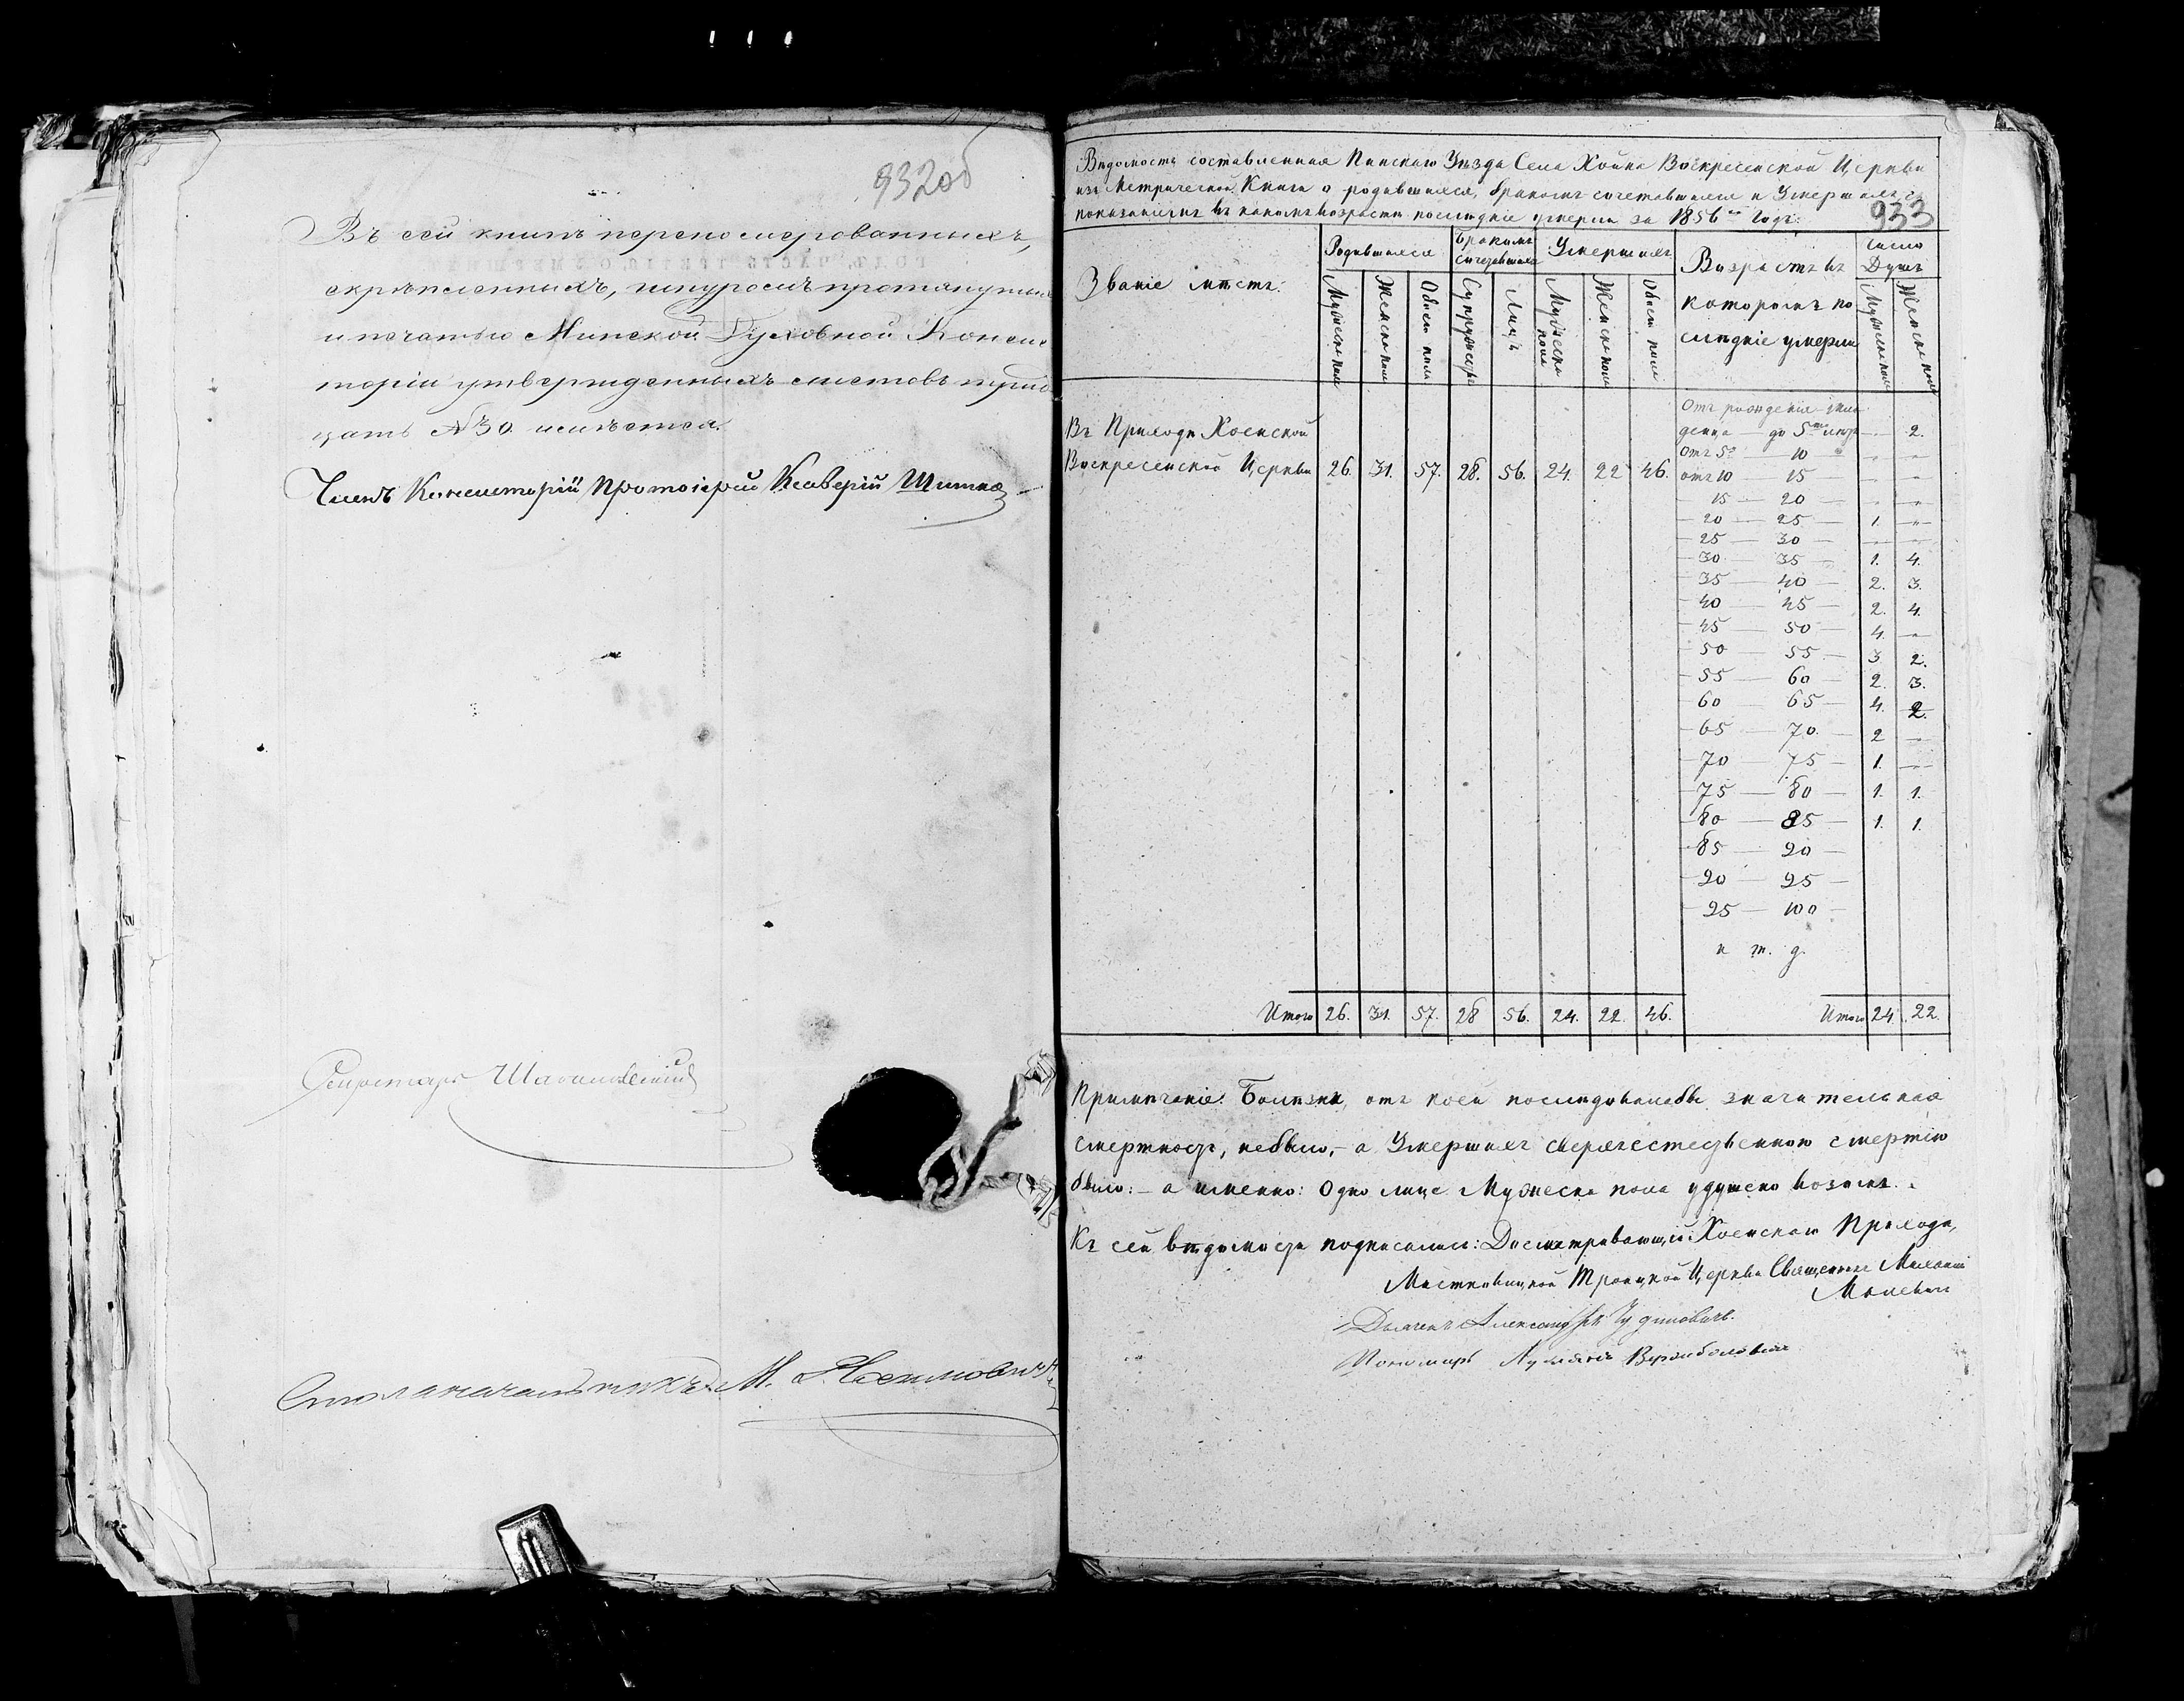 932об
Въ сей книгѣ перенумерованныхъ,
скрѣпленныхъ, шнуромъ протянутыхъ
и печатью Минской Духовной Конси
торіи утвержденныхъ листовъ трид
цать № 30. имѣется.
Членъ Консисторіи Протоіерей Ксаверій
Секретарь
Столоначальникъ М.
Вѣдомость составленная Пинскаго Уѣзда Села Хойна Воскресенской Церкви
изъ Метрической Книги о родившихся, бракомъ сочетавшихся и Умершихъ съ
показаніемъ въ какомъ возрасти послѣдніе умерли за 1856й Годъ:
933
Званіе мѣстъ:
Родившихся
Бракомъ сочетавшихся
Умершихъ
Возрастъ въ которомъ по слѣдніе умерли
Число Душъ
Мужеска пола
Женска пола
Обоего пола
Супружествъ
Лицъ
Мужеска пола
Женска пола
Обоего пола
Мужеска пола
Женска пола
Въ Приходѣ Хоенской
Воскресенской Церкви 26. 31. 57. 28. 56. 24. 22 46.
Отъ рожденія мла
денца — до 5ти лѣтъ — 2.
Отъ 5 10 " "
отъ 10 — 15 — " "
15 — 20 — " "
20 — 25 — 1. "
25 — 30 — " "
30 — 35 — 1. 4.
35 — 40 — 2. 3.
40 — 45 — 2. 4.
45 — 50 — 4. "
50 — 55 — 3 2.
55 — 60 — 2. 3.
60 — 65 — 4. 2.
65 — 70 — 2 "
70 — 75 — 1. "
75 — 80 — 1. 1.
80 — 85 — 1. 1.
85 — 90 —
90 — 95 —
95 — 100 —
и т. д.
Итого 26. 31. 57. 28 56. 24. 22. 46. Итого 24. 22.
Примѣчаніе: Болѣзни, отъ коей последовалабы значительная
смертность, небыло, – а Умершихъ сверхестественною смертію
было: – а именно: Одно лице Мужеска пола удушено возомъ.
Къ сей вѣдомости подписались: Досматривающій Хоенскаго Прихода,
Троицкой Церкви Священникъ
Дьячекъ Александръ
Пономарь